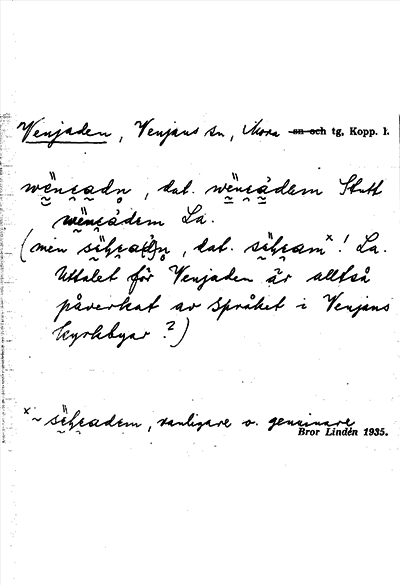 Venjaden, Venjans sn, Mora sn och tg, Kopp. l.
wëncadn, dat. wëncådem Stutt
wëncådem La.
(men sëhcadn, dat. sëhcam x! La.
Uttalet för Venjaden är alltså
påverkat av språket i Venjans
kyrkbyar?)
x ~ sëhcadem, vanligare o. genuinare
Bror Lindén 1935.